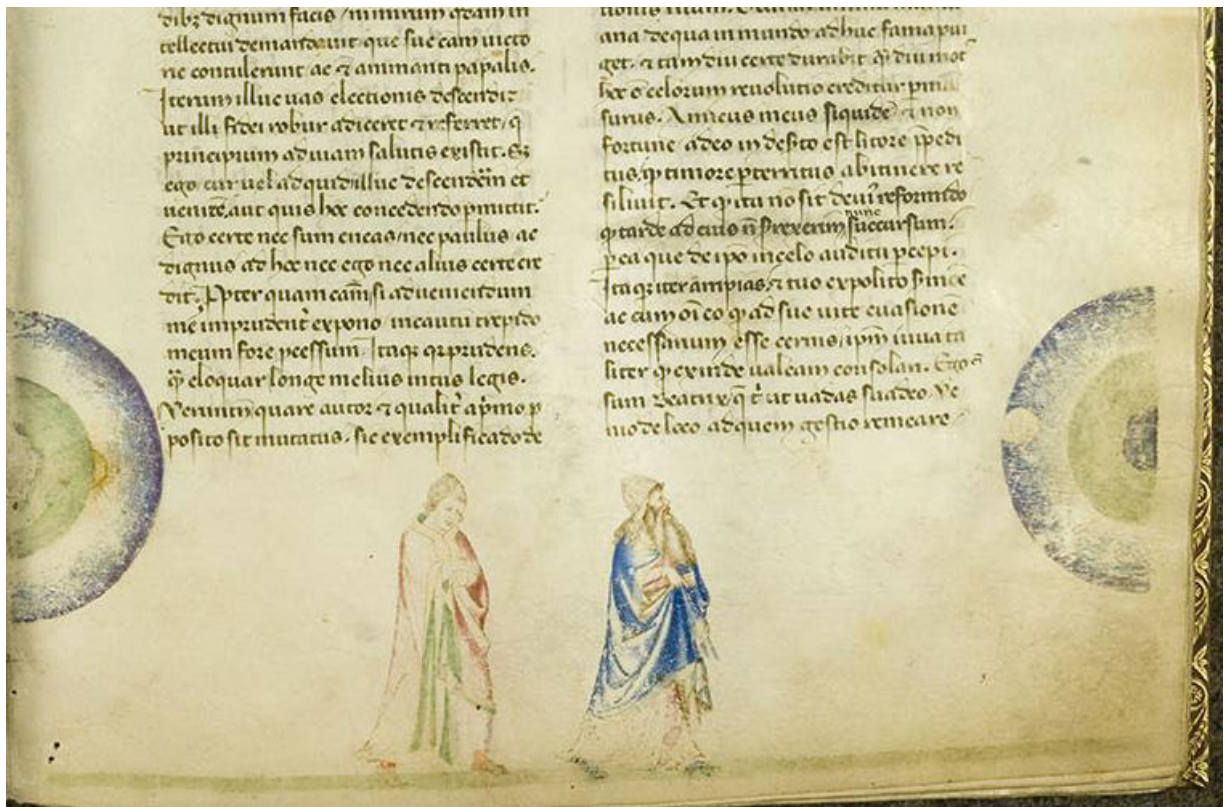 dibꝫ dignum facis / ni mirum q̄dam in
tellectui demandauit que sue cam uicto
rie contulerunt ac ⁊ ammanti papalis.
Iterum illuc uas electionis descendit
ut illi fidei robur adiceret ⁊ referret, q̄
principium ad uiam salutis existit. Sꝫ
ego cur uel ad quid illuc descenderim et
uenire, aut quis hoc concedendo ꝑmittit.
Ego certe nec sum eneas / nec paulus ac
dignus ad hoc nec ego nec alius certe cre
dit. Ppter quam cam̄ si ad ueniendum
me imprudent̓ expono incautū trepido
meum fore ꝓcessum. Itaqꝫ qr̄ prudens.
q̄ eloquar longe melius intus legis.
Veruntn̄ quare autor ⁊ qualit̓ a pimo ꝓ
posito sit mutatus. sic exemplificādo de
ana de qua in mundo adhuc fama
get. ⁊ tam diu certe durabit qͣ diu mot
hec o celorum reuolutio creditur
surus. Amicus meus siquidē ⁊ non
fortune adeo in deserto est litore p̄pedi
tus, qꝫ timore ꝑterritus ab itinere re
siliuit. Et qꝫ ita nō sit deui reformido
qꝫ tarde ad eius nunc succursum.
ꝑ ea que de ipō in celo auditu ꝑcepi.
Itaqꝫ iter ampias, ⁊ tuo expolito ẜmōe
ac cum oī eo qꝫ ad sue uite euasionē
necessarium esse cernis, ipm̄ iuua ta
liter qꝫ exinde ualeam consolari. Ego
sum Beatrix, q̄ t̓ ut uadas suadeo. Ve
nio de loco ad quem gestio remeare